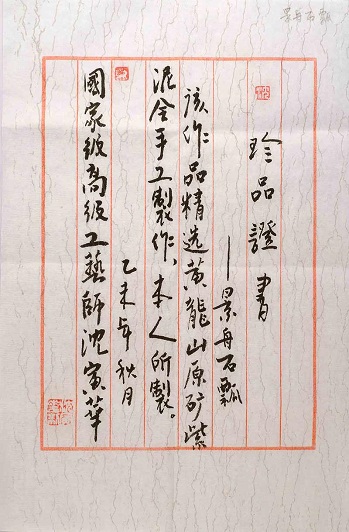 景舟石瓢
珍品證書
—景舟石瓢
该作品精选黄龍山原矿紫
泥全手工製作、本人所製。
乙未年秋月
國家级高级工藝師沈寅華